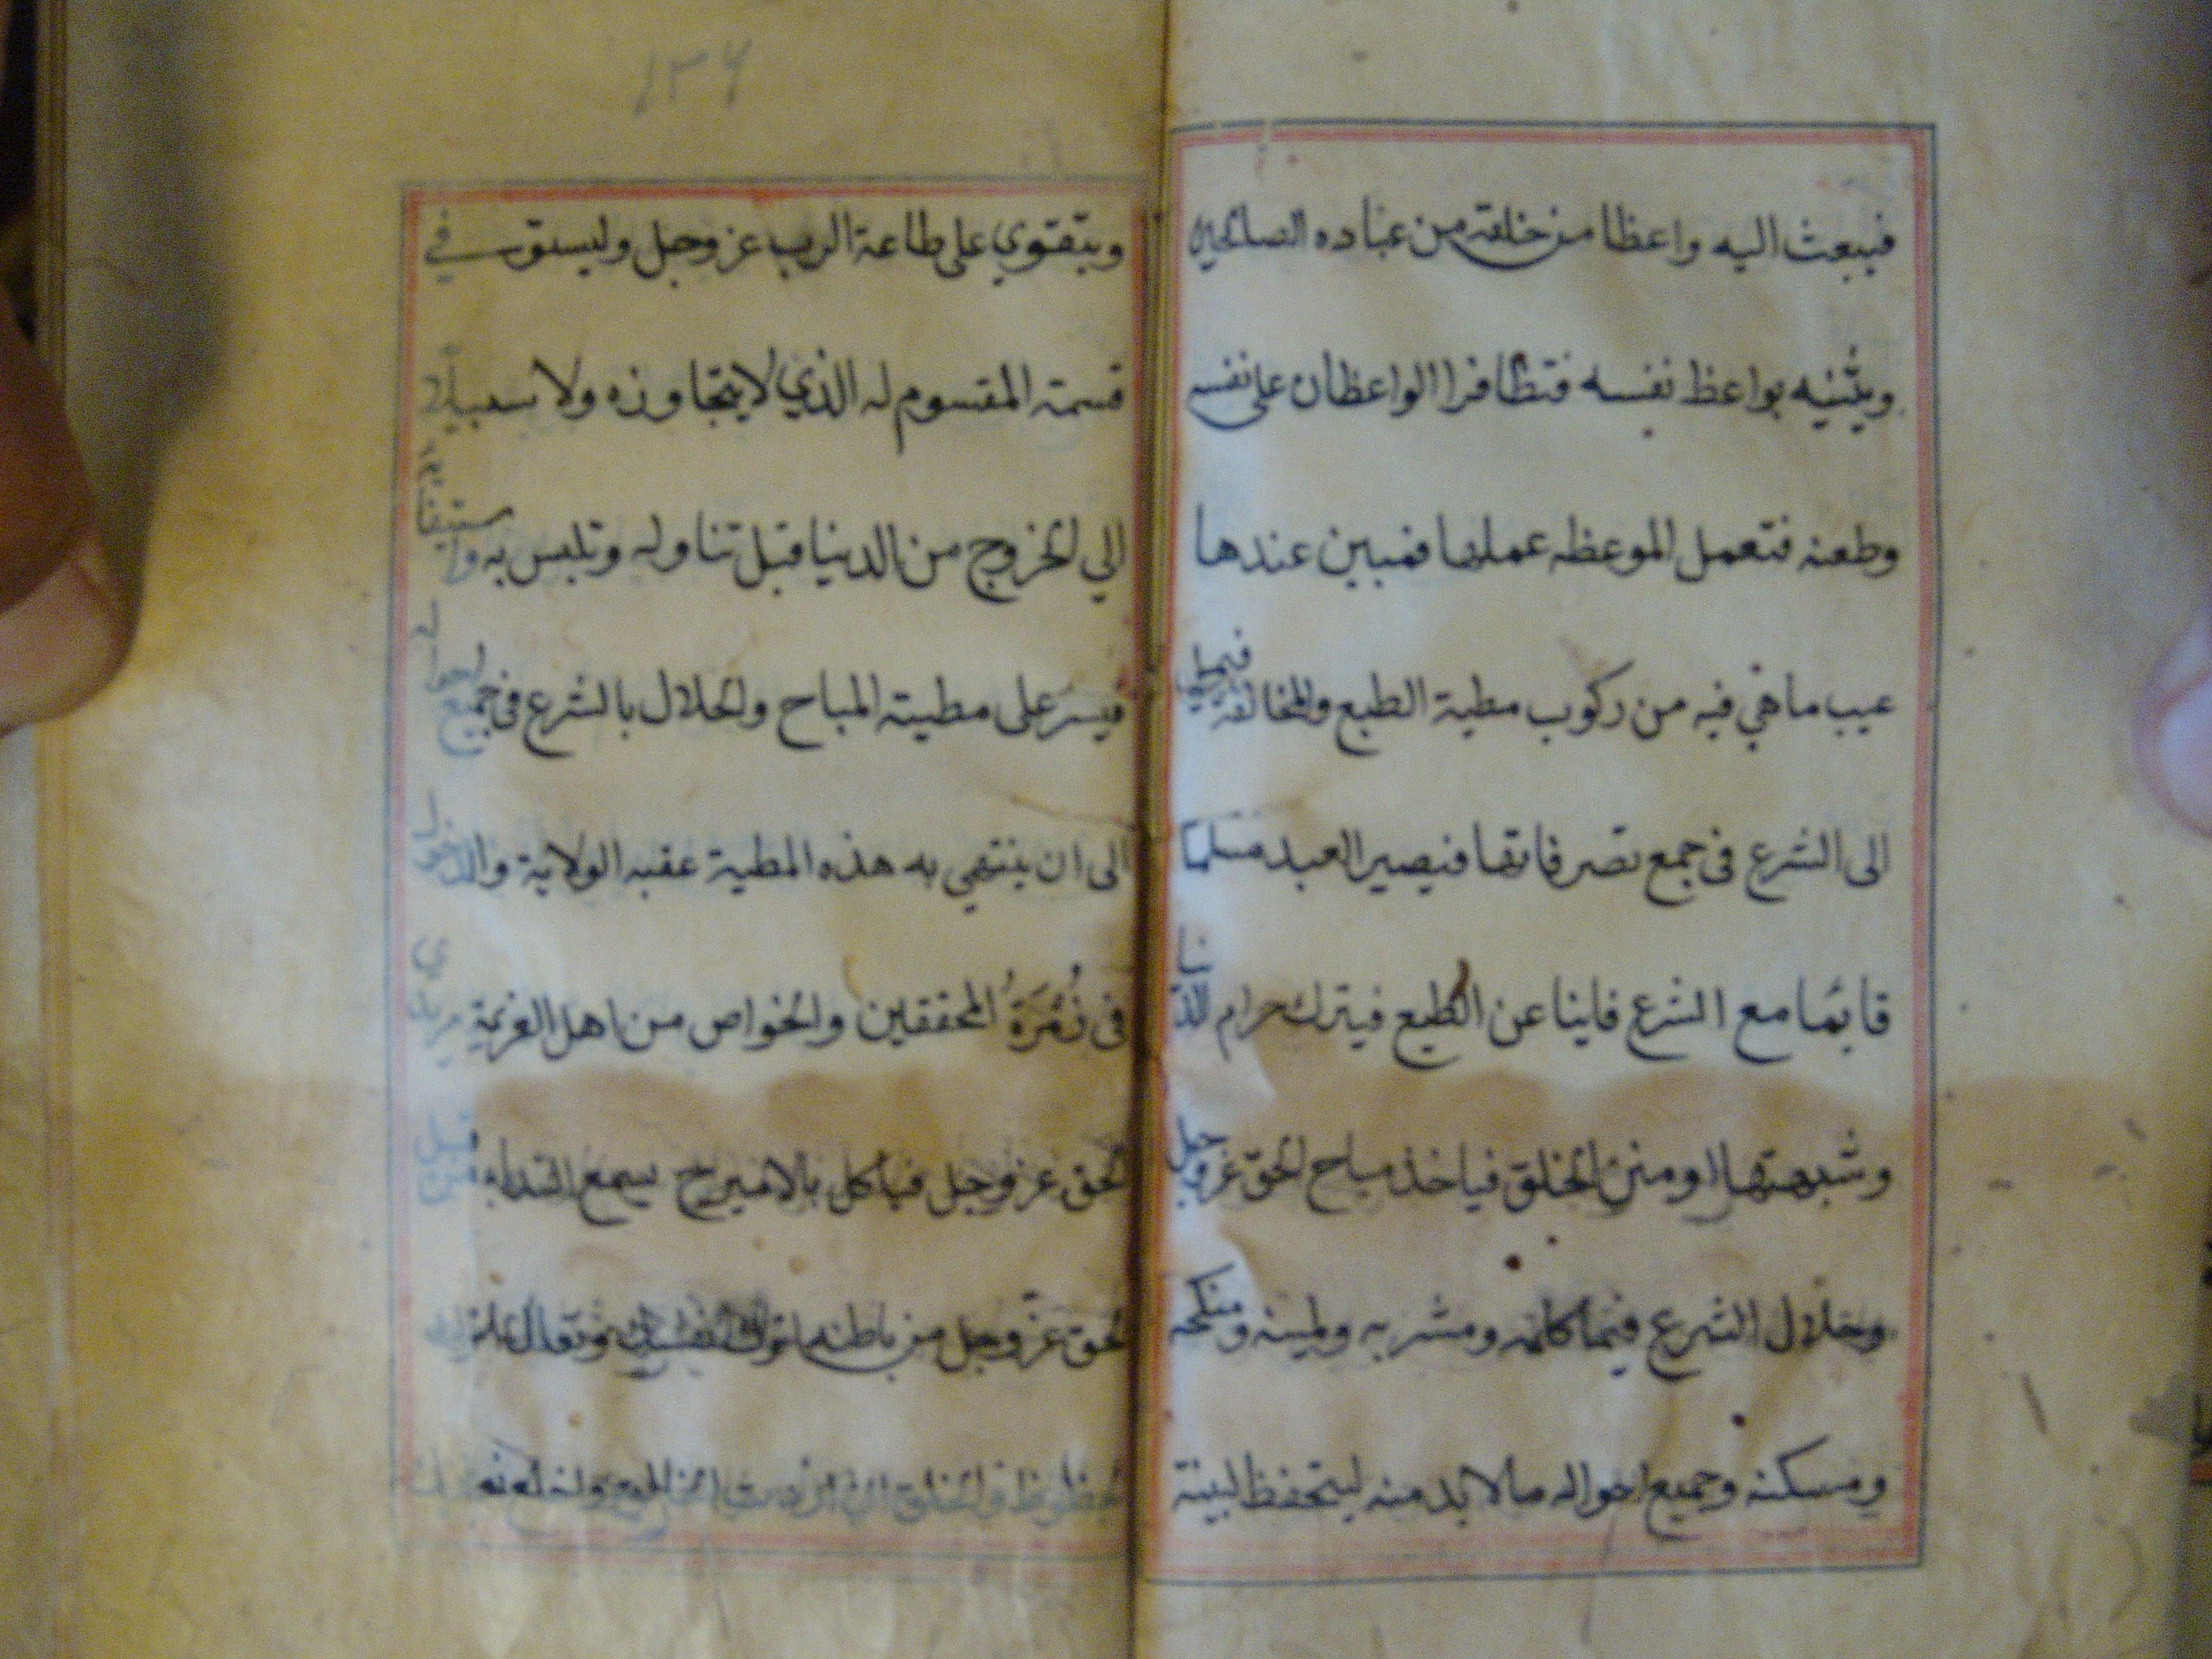 فيبعث اليه واعظا من خلقه من عباده الصالحين
ويثنيه بواعظ نفسه فتظافرا الواعظان على نفسه
وطعنه فتعمل الموعظه عملها فمبين عندها
عيب ما هي فيه من ركوب مطية الطبع والمخالفة فيميل
الى الشرع فى جمع تصرفاتها فيصير العبد مسلما
قايما مع الشرع فانيا عن الطبع فيترك حرام الدنيا
وشبهتها ومنن الخلق فياخذ مباح الحق عز وجل
وحلال الشرع فيماكله ومشربه ولبسه ومنكحه
ومسكنه وجميع احواله ما لا بد منه ليتحفظ البنية
١٣٦
ويتقوي على طاعة الرب عز وجل وليستوفي
قسمة المقسوم له الذي لا يتجاوزه ولا سبيل
الي الخروج من الدنيا قبل تناوله وتلبس به واستيفائه
فيسير على مطية المباح والحلال بالشرع فى جميع احواله
الى ان ينتهي به هذه المطية عقبه الولاية والدخول
فى زُمْرَةُ المحققين والخواص من اهل العزيمة مريدي
الحق عز وجل فياكل بالامر يسمع النداء
الحق عز وجل من باطنه اترك نفسك وتعال